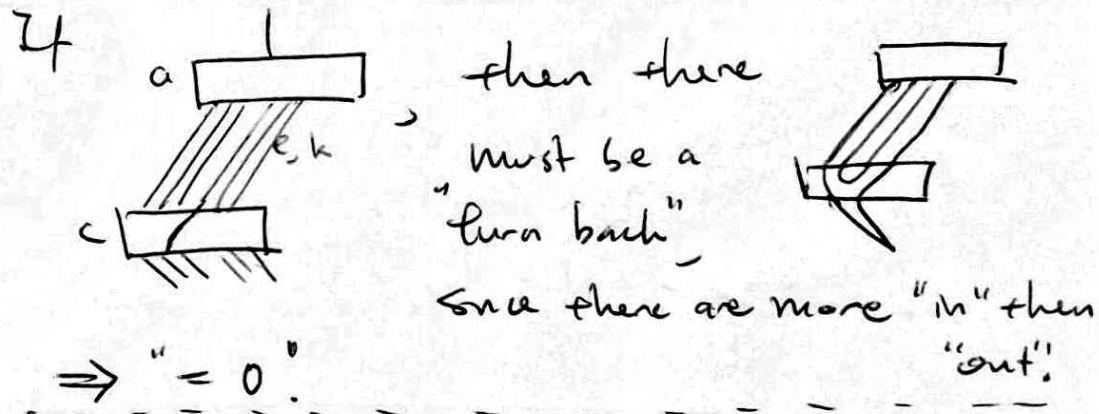 If
a
, then there
l, k
must be a
c
"turn back"
Since there are more "in" then
"out".
⇒ "= 0".